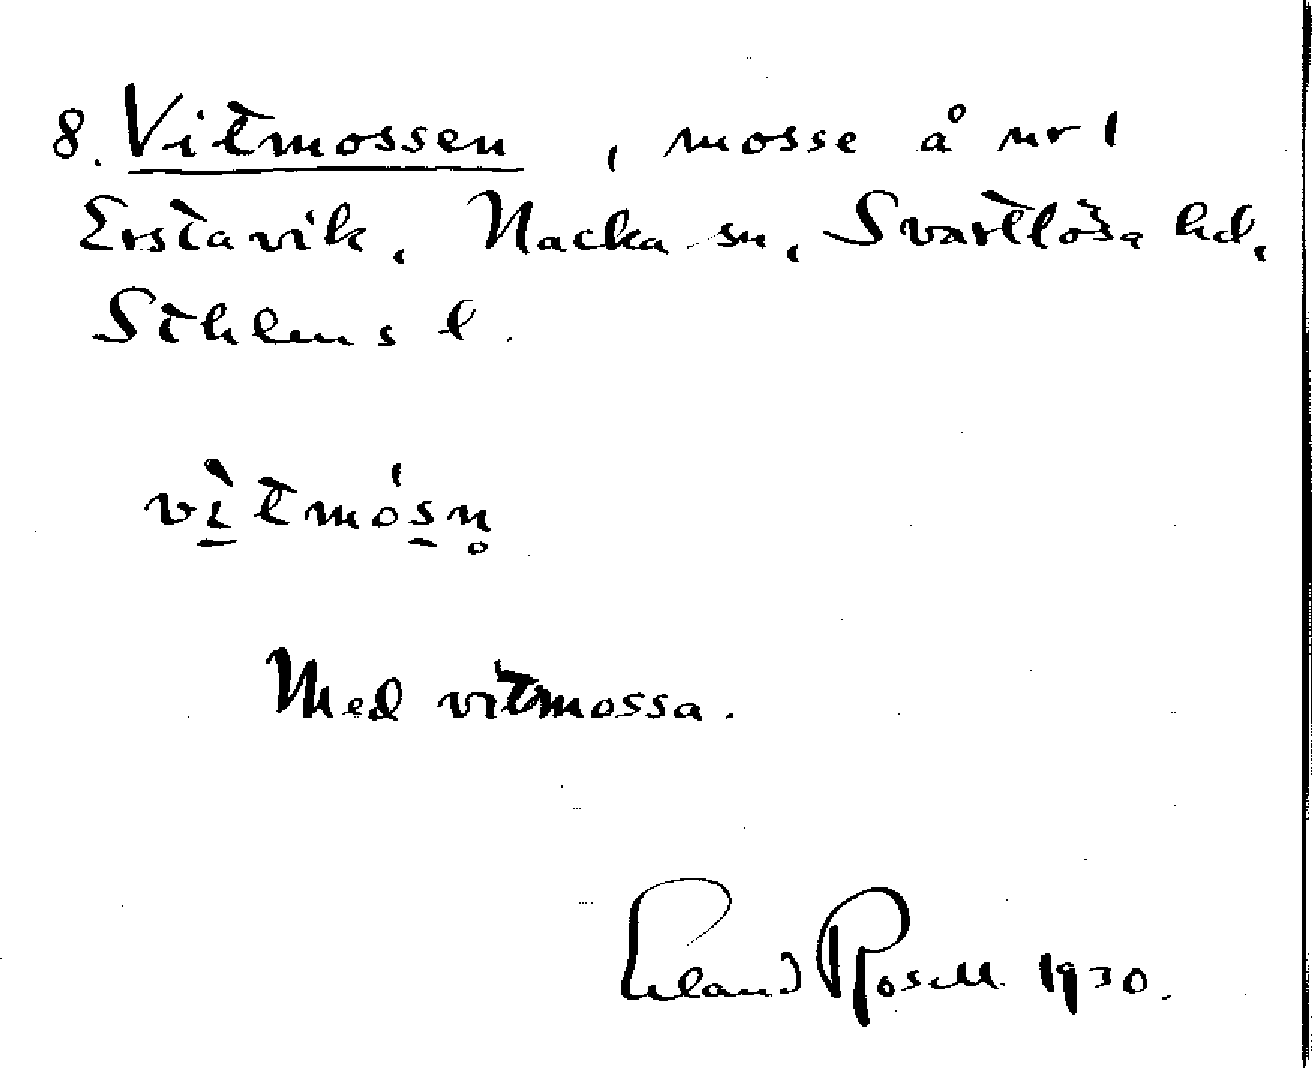 8. Vitmossen, mosse å nr 1
Erstavik, Nacka sn, Svartlösa hd,
Sthlms l.
vì̱tmós̱n̥
Med vitmossa.
Erland Rosell 1930.